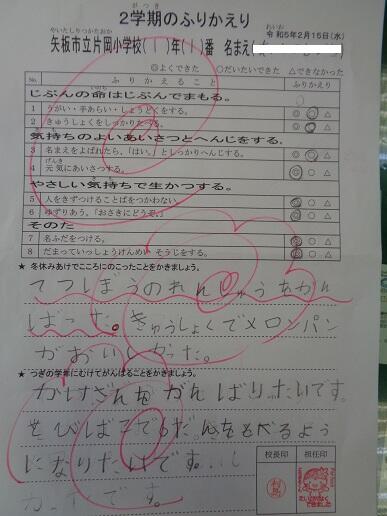 2学期のふりかえり
矢板市立片岡小学校( )年( )番 名まえ(
令和5年2月15日(水)
◎よくできた ○だいたいできた △できなかった
No. ふりかえること ふりかえり
じぶんの命はじぶんでまもる。
1 うがい・手あらい・しょうどくをする。 ◎ ○ △
2 きゅうしょくをしっかりたべる。 ◎ ○ △
気持ちのよいあいさつとへんじをする。
3 名まえをよばれたら、「はい。」としっかりへんじする。 ◎ ○ △
4 元気にあいさつする。 ◎ ○ △
やさしい気持ちで生かつする。
5 人をきずつけることばをつかわない。 ◎ ○ △
6 ゆずりあう。「おさきにどうぞ。」 ◎ ○ △
そのた
7 名ふだをつける。 ◎ ○ △
8 だまっていっしょうけんめい そうじをする。 ◎ ○ △
★ 冬休みあけでこころにのこったことをかきましょう。
てつぼうのれんしゅうをがん
ばった。きゅうしょくでメロンパン
がおいしかった。
★ つぎの学年にむけてがんばることをかきましょう。
かけざんをがんばりたいです。
とびばこで だんをとべるよう
になりたいです。
です。
校長印 担任印